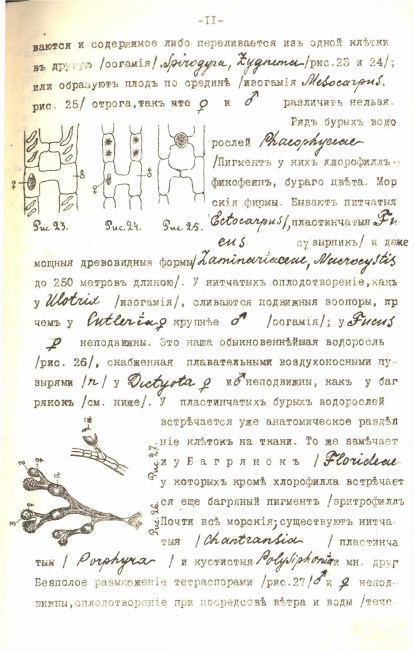 -II-
ваются и содержимое либо переливается изъ одной клѣтки
въ другую /оогамія/, Spirogyra, Zygnema /рис.23 и 24/;
или образуютъ плодъ по срединѣ /изогамія Mesocarpus.
рис. 25/ отрога, такъ что ♀ и ♂ различить нельзя.
Рядъ бурыхъ водо
рослей Phaeophyceae
/Пигментъ у нихъ хлорофиллъ-
фикофеинъ, бураго цвѣта. Мор
скія фирмы. Бываютъ питчатыя
Рис 23. Рис. 24. Рис. 25.
Ectocarpus/, пластинчатыя Fu
cus пузырникъ/ и даже
мощныя древовидныя формы/Laminariaceae, Macrocystis
до 250 метровъ длиною/. У нитчатыхъ оплодотвореніе, какъ
у Ulotrix /изогамія/, сливаются подвижныя зоопоры, пр
чемъ у Cutleria ♀ крупнѣе ♂ /оогамія/; у Fucus
♀ неподвижны. Это наша обыкновеннѣйшая водоросль
/рис. 26/, снабженная плавательными воздухоносными пу-
зырями /п/ у Dictyota ♀ и ♂ неподвижны, какъ у баг
рянокъ /см. ниже/. У пластинчатыхъ бурыхъ водорослей
встрѣчается уже анатомическое раздѣл
ніе клѣтокъ на ткани. То же замѣчает
и у Багрянокъ /Florideae
у которыхъ кромѣ хлорофилла встрѣчает
ся еще багряный пигментъ /эритрофиллъ
Рис. 27.
Рис 26.
Почти всѣ морскія; существуютъ нитча-
тыя /Chantransia / пластинча
тыя / Porphyra / и кустистыя Polysiphonia и мн. друг
Безполое размноженіе тетраспорами /рис.27/ ♂ и ♀ непод-
вижны, оплодотвореніе при посредствѣ вѣтра и воды /тече-